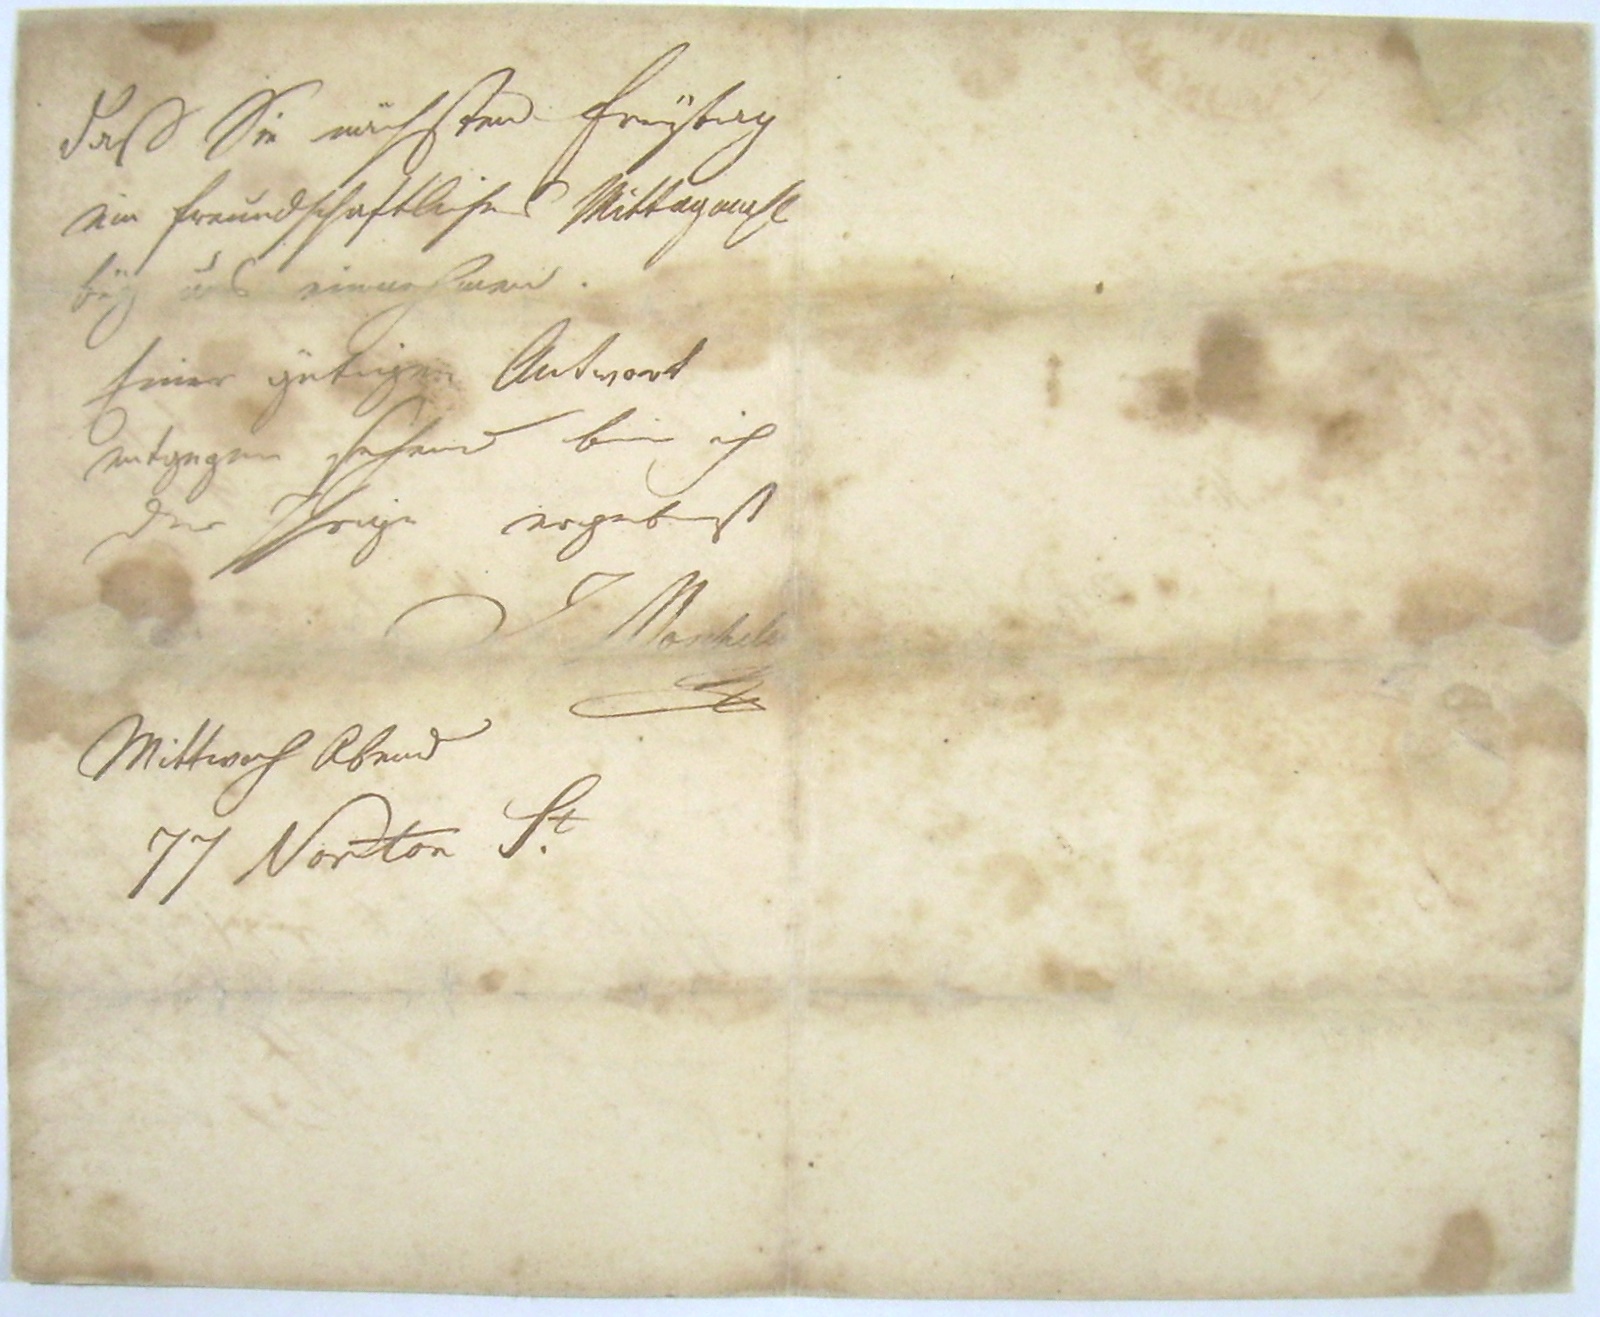 daß Sie nächsten Freÿtag
ein freundschaftliches Mittagmahl
beÿ uns einnehmen.
Einer gütigen Antwort
entgegen sehend bin ich
der Ihrige ergebenst
J Moschele
Mittwoch Abend
77 Norton St.